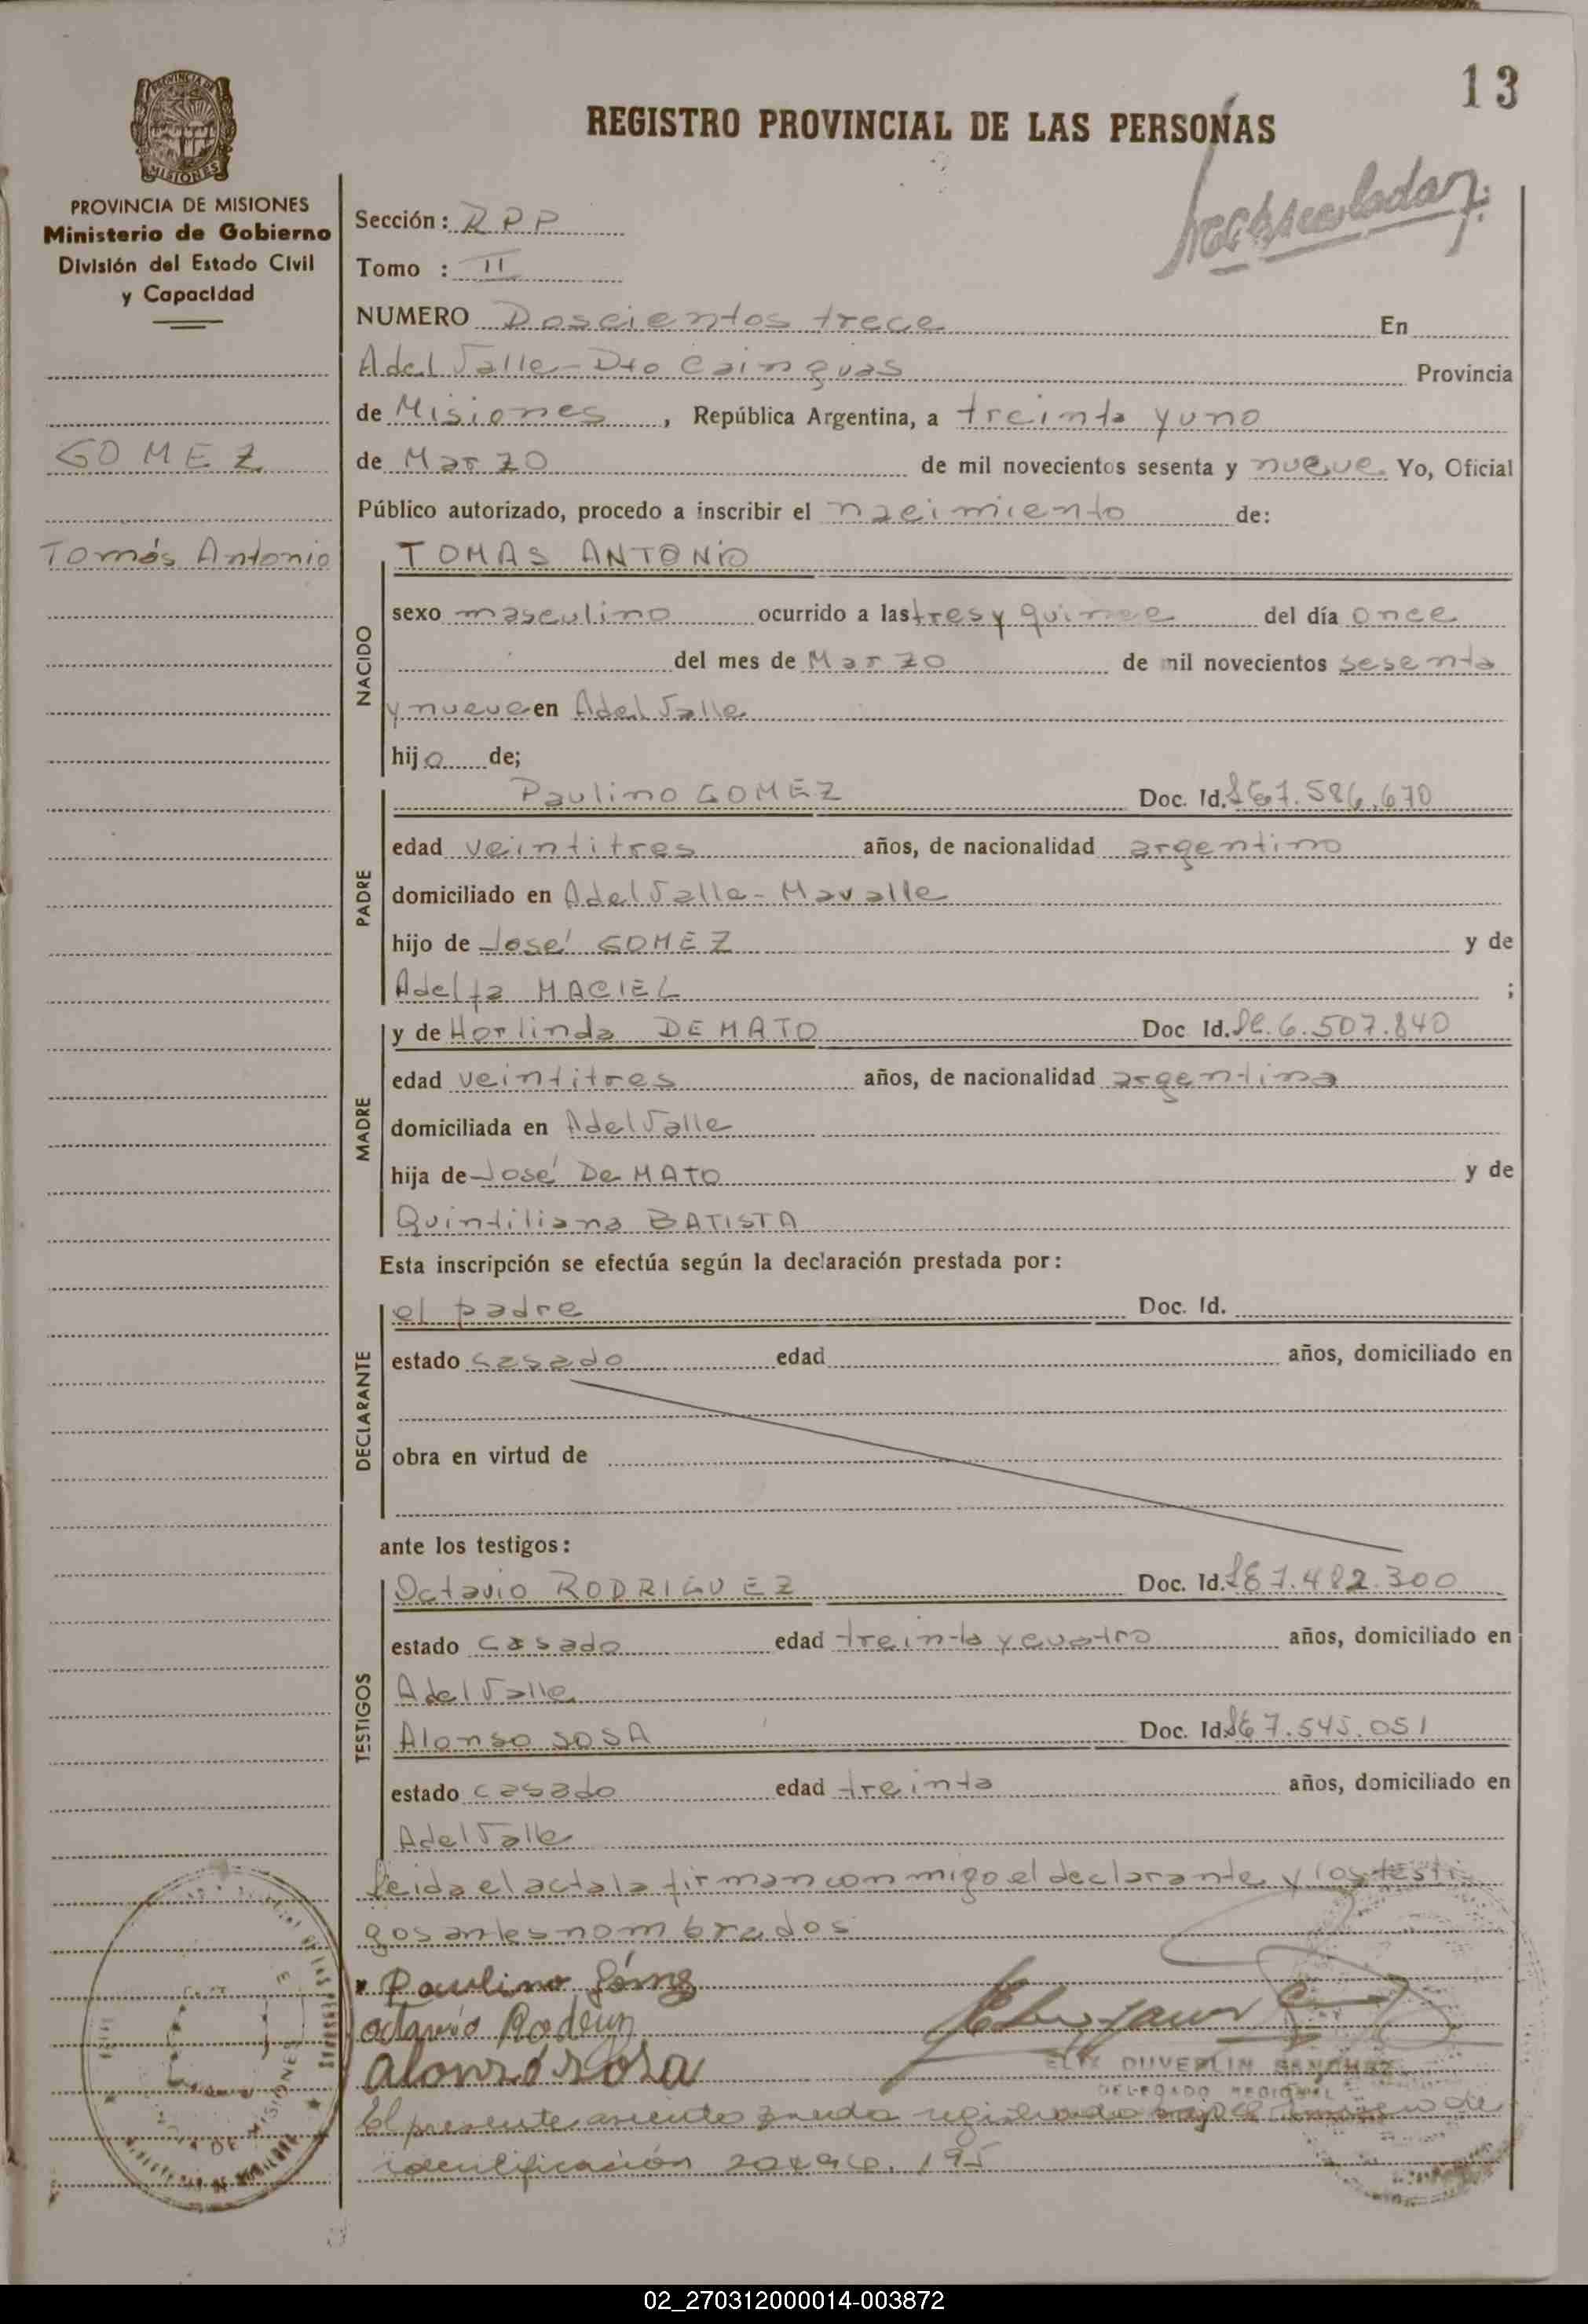 13
REGISTRO PROVINCIAL DE LAS PERSONAS
MISIONES
PROVINCIA DE MISIONES
Ministerio de Gobierno
División del Estado Civil
y Capacidad
GOMEZ
Tomás Antonio
Sección: R P P
Tomo : II
NUMERO Doscientos trece En
Adel Valle - Dto Cainguas Provincia
de Misiones, República Argentina, a treinta y uno
de Marzo de mil novecientos sesenta y nueve Yo, Oficial
Público autorizado, procedo a inscribir el nacimiento de:
NACIDO
TOMAS ANTONIO
sexo masculino ocurrido a las tres y quince del día once
del mes de Marzo de mil novecientos sesenta
y nueve en Adel Valle
hijo de;
PADRE
Paulino GOMEZ Doc. Id. 7.586.670
edad veintitres años, de nacionalidad argentino
domiciliado en Adel Valle - Mavalle
hijo de José GOMEZ y de
Adelfa MACIEL ;
MADRE
y de Horlinda DE MATO Doc Id. 6.507.840
edad veintitres años, de nacionalidad argentina
domiciliada en Adel Valle
hija de José De MATO y de
Quintiliana BATISTA
Esta inscripción se efectúa según la declaración prestada por:
DECLARANTE
el padre Doc. Id.
estado casado edad años, domiciliado en
obra en virtud de
ante los testigos:
TESTIGOS
Octavio RODRIGUEZ Doc. Id. 7.482.300
estado casado edad treinta y cuatro años, domiciliado en
Adel Valle
Alonso SOSA Doc. Id. 7.545.051
estado casado edad treinta años, domiciliado en
Adel Valle
Leida el acta la firman conmigo el declarante y los testi
gos antes nombrados
Paulino Gómez
octavio
alonso sosa
DUVERLIN SANCHEZ
DELEGADO REGIONAL
El presente asiento queda registrado bajo el numero de
identificación
02_270312000014-003872